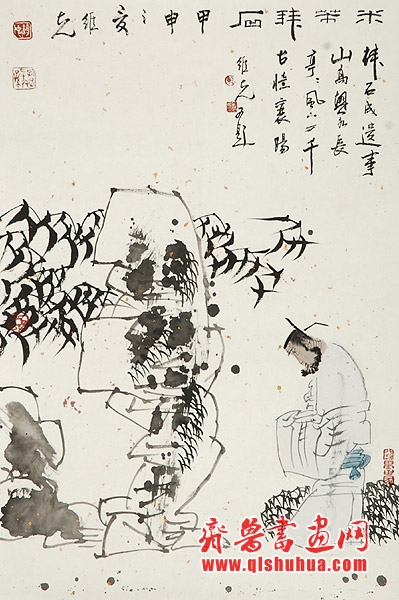 米芾拜石甲申之夏維克
拜石成遺事
山高興亦長
亭〻風千
古憶襄陽
維克又題
齐鲁書画网
www.qlshuhua.com